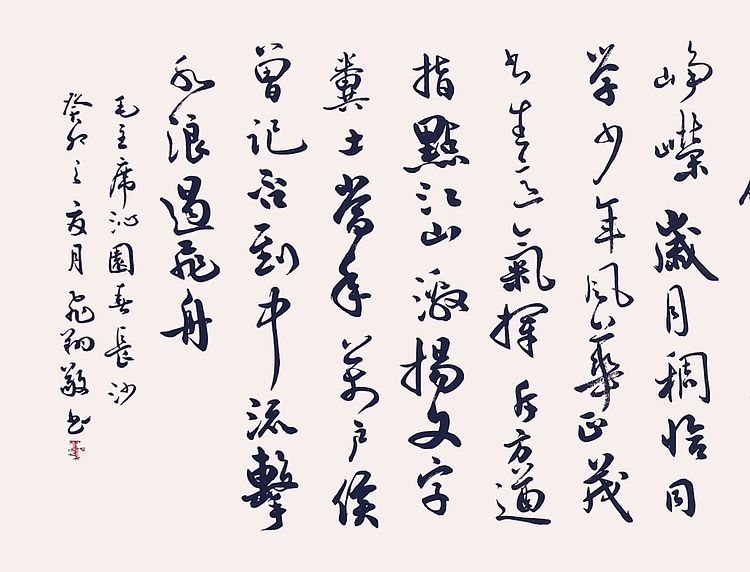 崢嶸歲月稠恰同
学少年風華正茂
书生意氣揮斥方遒
指點江山激揚文字
糞土當年萬戶侯
曾记否到中流擊
水浪遏飛舟
毛主席沁園春長沙
癸卯之夏月飛翔敬书